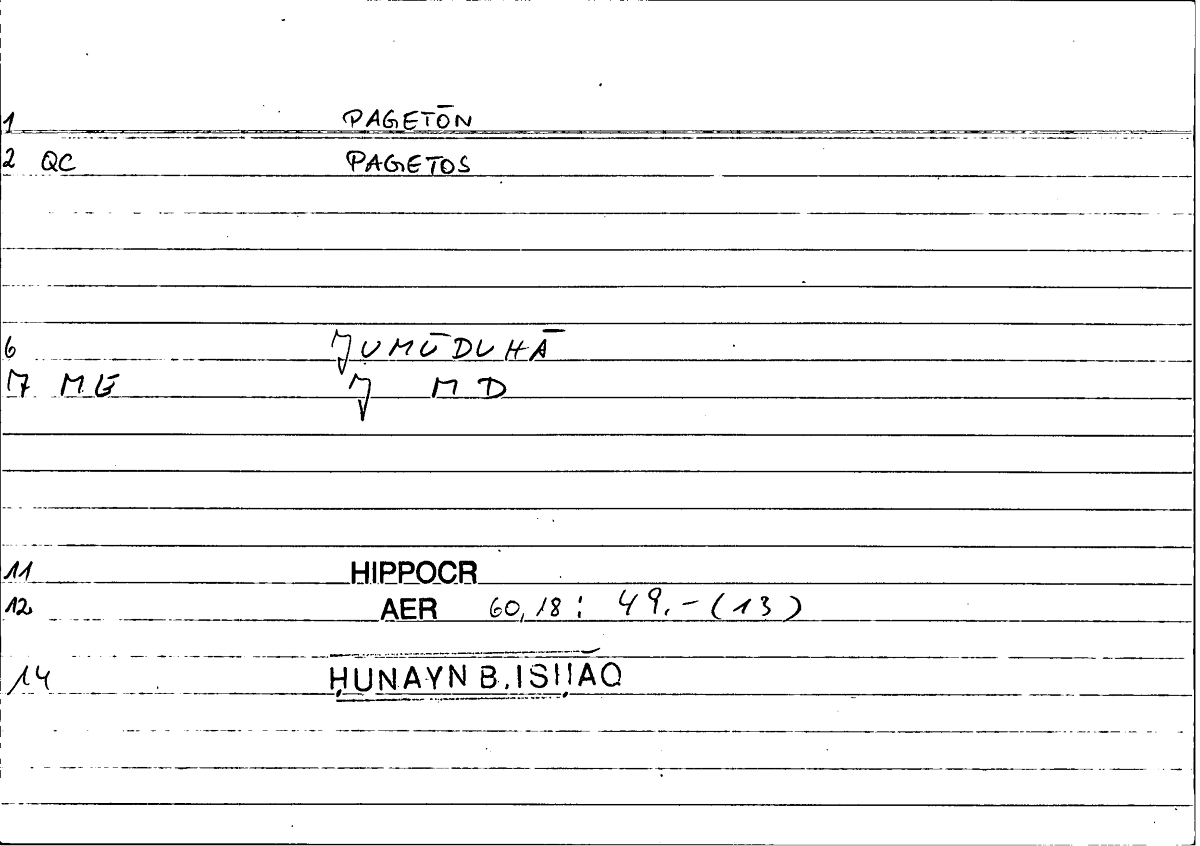 1 PAGETŌN
2 QC PAGETOS
6 JUMŪDUHĀ
7 ME J M D
11 HIPPOCR
12 AER 60,18: 49.-(13)
14 ḤUNAYN B. ISḤĀQ